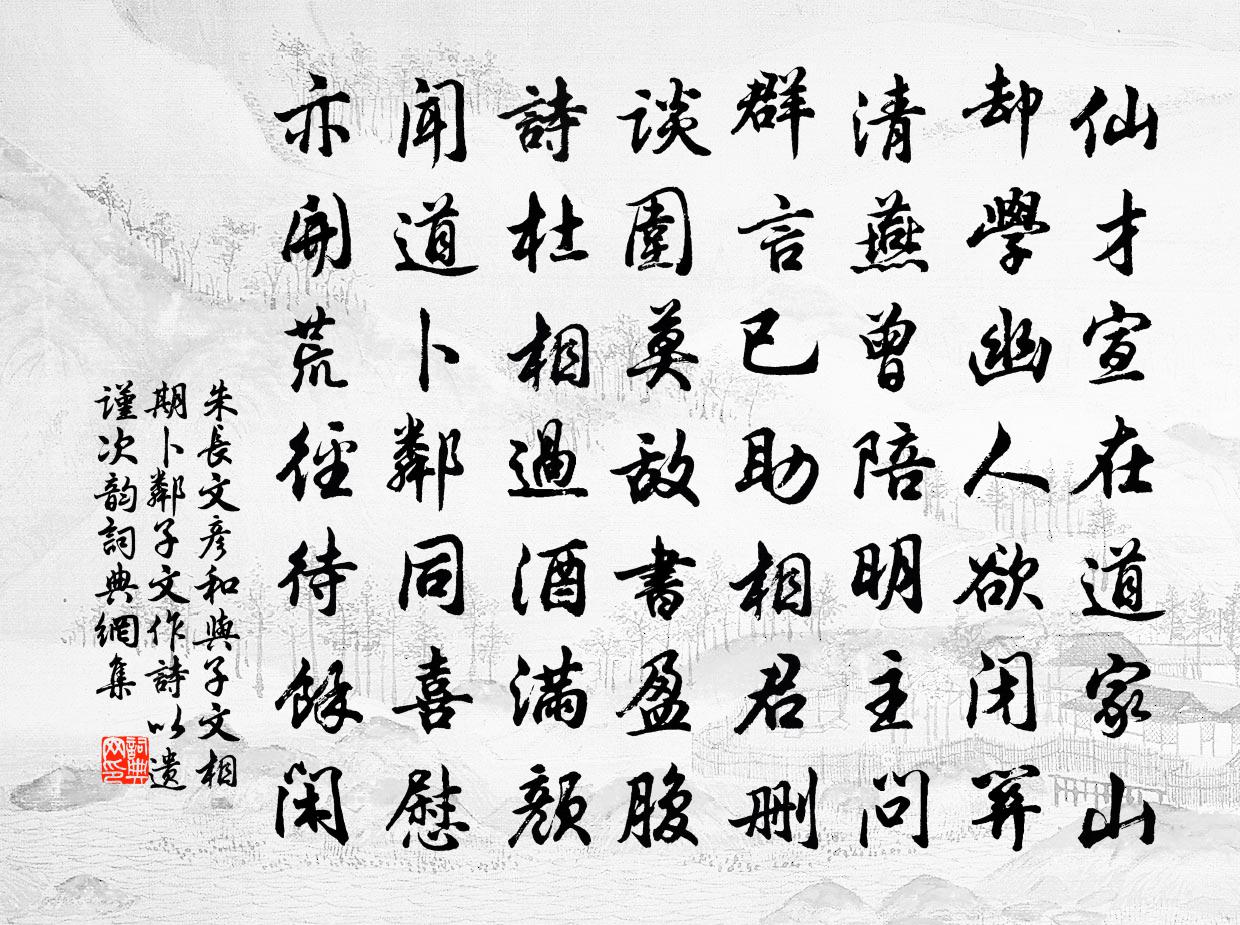 仙才宣在道家山
却學幽人欲闭關
清燕曾陪明主问
群言已助相君删
谈圍莫敌書盈腹
詩杜相過酒满颜
闻道卜鄰同喜慰
亦開荒徑待餘闲
朱長文彦和與子文相
期卜鄰子文作詩以遗
谨次韵詞典網集
詞典网印